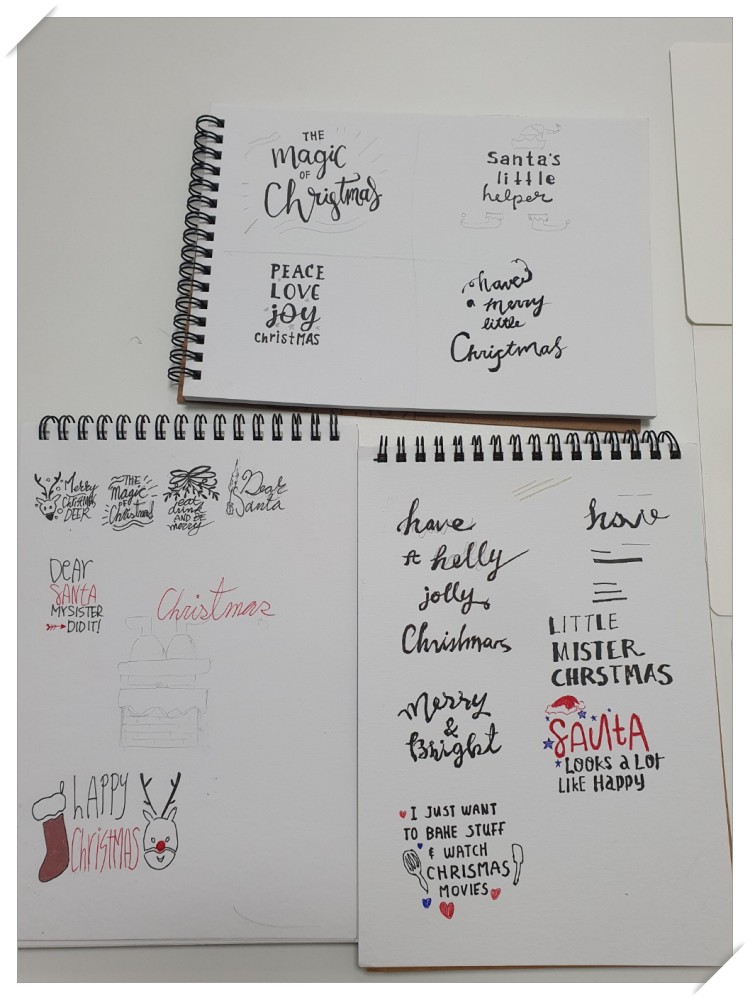 THE
magic
OF
Christmas
Santa's
little
helper
PEACE
LOVE
joy
christmas
have
a merry
little
Christmas
Merry
CHRISTMAS
DEER
THE
Magic
OF
Christmas
eat
drink
AND BE
merry
Dear
Santa
DEAR
SANTA
MY SISTER
DID IT!
Christmas
hAPPY
ChRISTMAS
have
A holly
jolly
Christmas
have
LITTLE
MISTER
CHRSTMAS
Merry
&
Bright
SANtA
LOOKS a LOT
LIKE HaPPY
I JUST WANT
TO BAKE STUFF
& WATCH
CHRISMAS
MOVIES